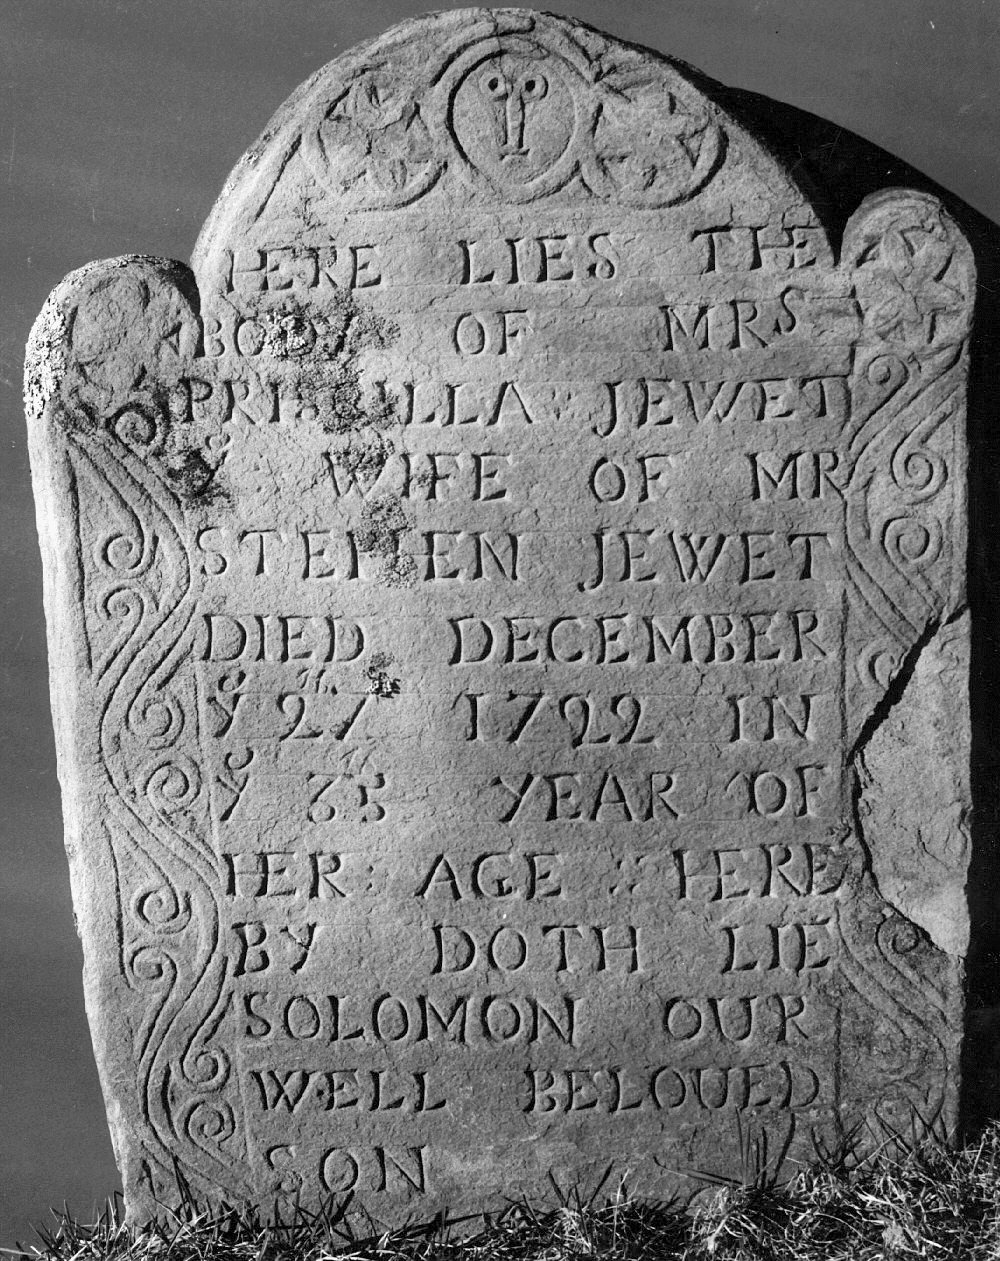 HERE LIES THE
BODY OF MRS
PRISILLA : JEWET
WIFE OF MR
STEPHEN JEWET
DIED DECEMBER
yᵉ 27ᵗʰ 1722 IN
yᵉ 73ᵈ YEAR OF
HER : AGE :: HERE
BY DOTH LIE
SOLOMON OUR
WELL BELOUED
SON